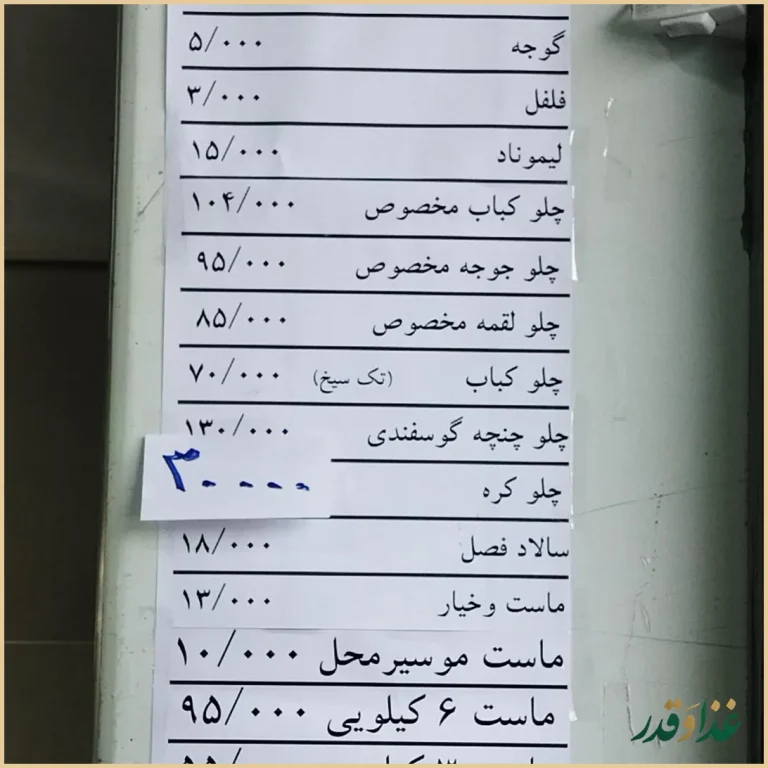 گوجه ۵/۰۰۰
فلفل ۳/۰۰۰
لیموناد ۱۵/۰۰۰
چلو کباب مخصوص ۱۰۴/۰۰۰
چلو جوجه مخصوص ۹۵/۰۰۰
چلو لقمه مخصوص ۸۵/۰۰۰
چلو کباب (تک سیخ) ۷۰/۰۰۰
چلو چنچه گوسفندی ۱۳۰/۰۰۰
چلو کره ۳۰۰۰۰
سالاد فصل ۱۸/۰۰۰
ماست و خیار ۱۳/۰۰۰
ماست موسیر محل ۱۰/۰۰۰
ماست ۶ کیلویی ۹۵/۰۰۰
غذا و قدر